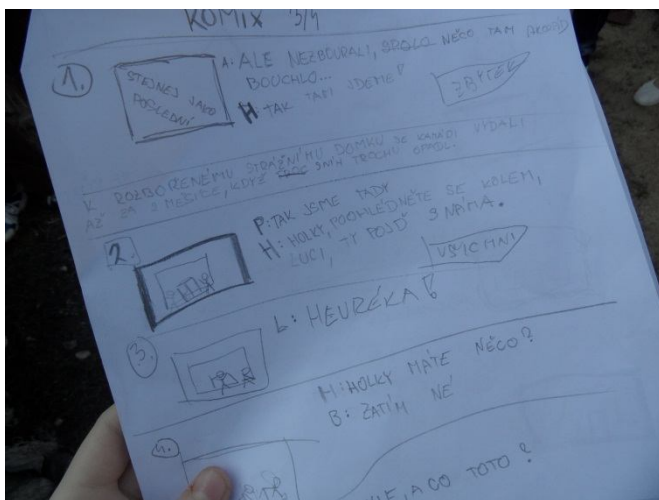 KOMIX 3/4
1.
STEJNEJ JAKO
POSLEDNÍ
A: ALE NEZBOURALI, NĚCO TAM
BOUCHLO...
H: TAK TAM JDEME!
ZBYTEK
K ROZBOŘENÉMU STRÁŽNÍMU DOMKU SE KAMARÁDI VYDALI
AŽ ZA 2 MĚSÍCE, KDYŽ SNÍH TROCHU OPADL.
2.
P: TAK JSME TADY
H: HOLKY, POOHLÉDNĚTE SE KOLEM,
LUCI, TY POJĎ S NÁMA.
VŠICHNI
3.
L: HEURÉKA!
H: HOLKY MÁTE NĚCO?
B: ZATÍM NE
4.
, A CO TOTO?